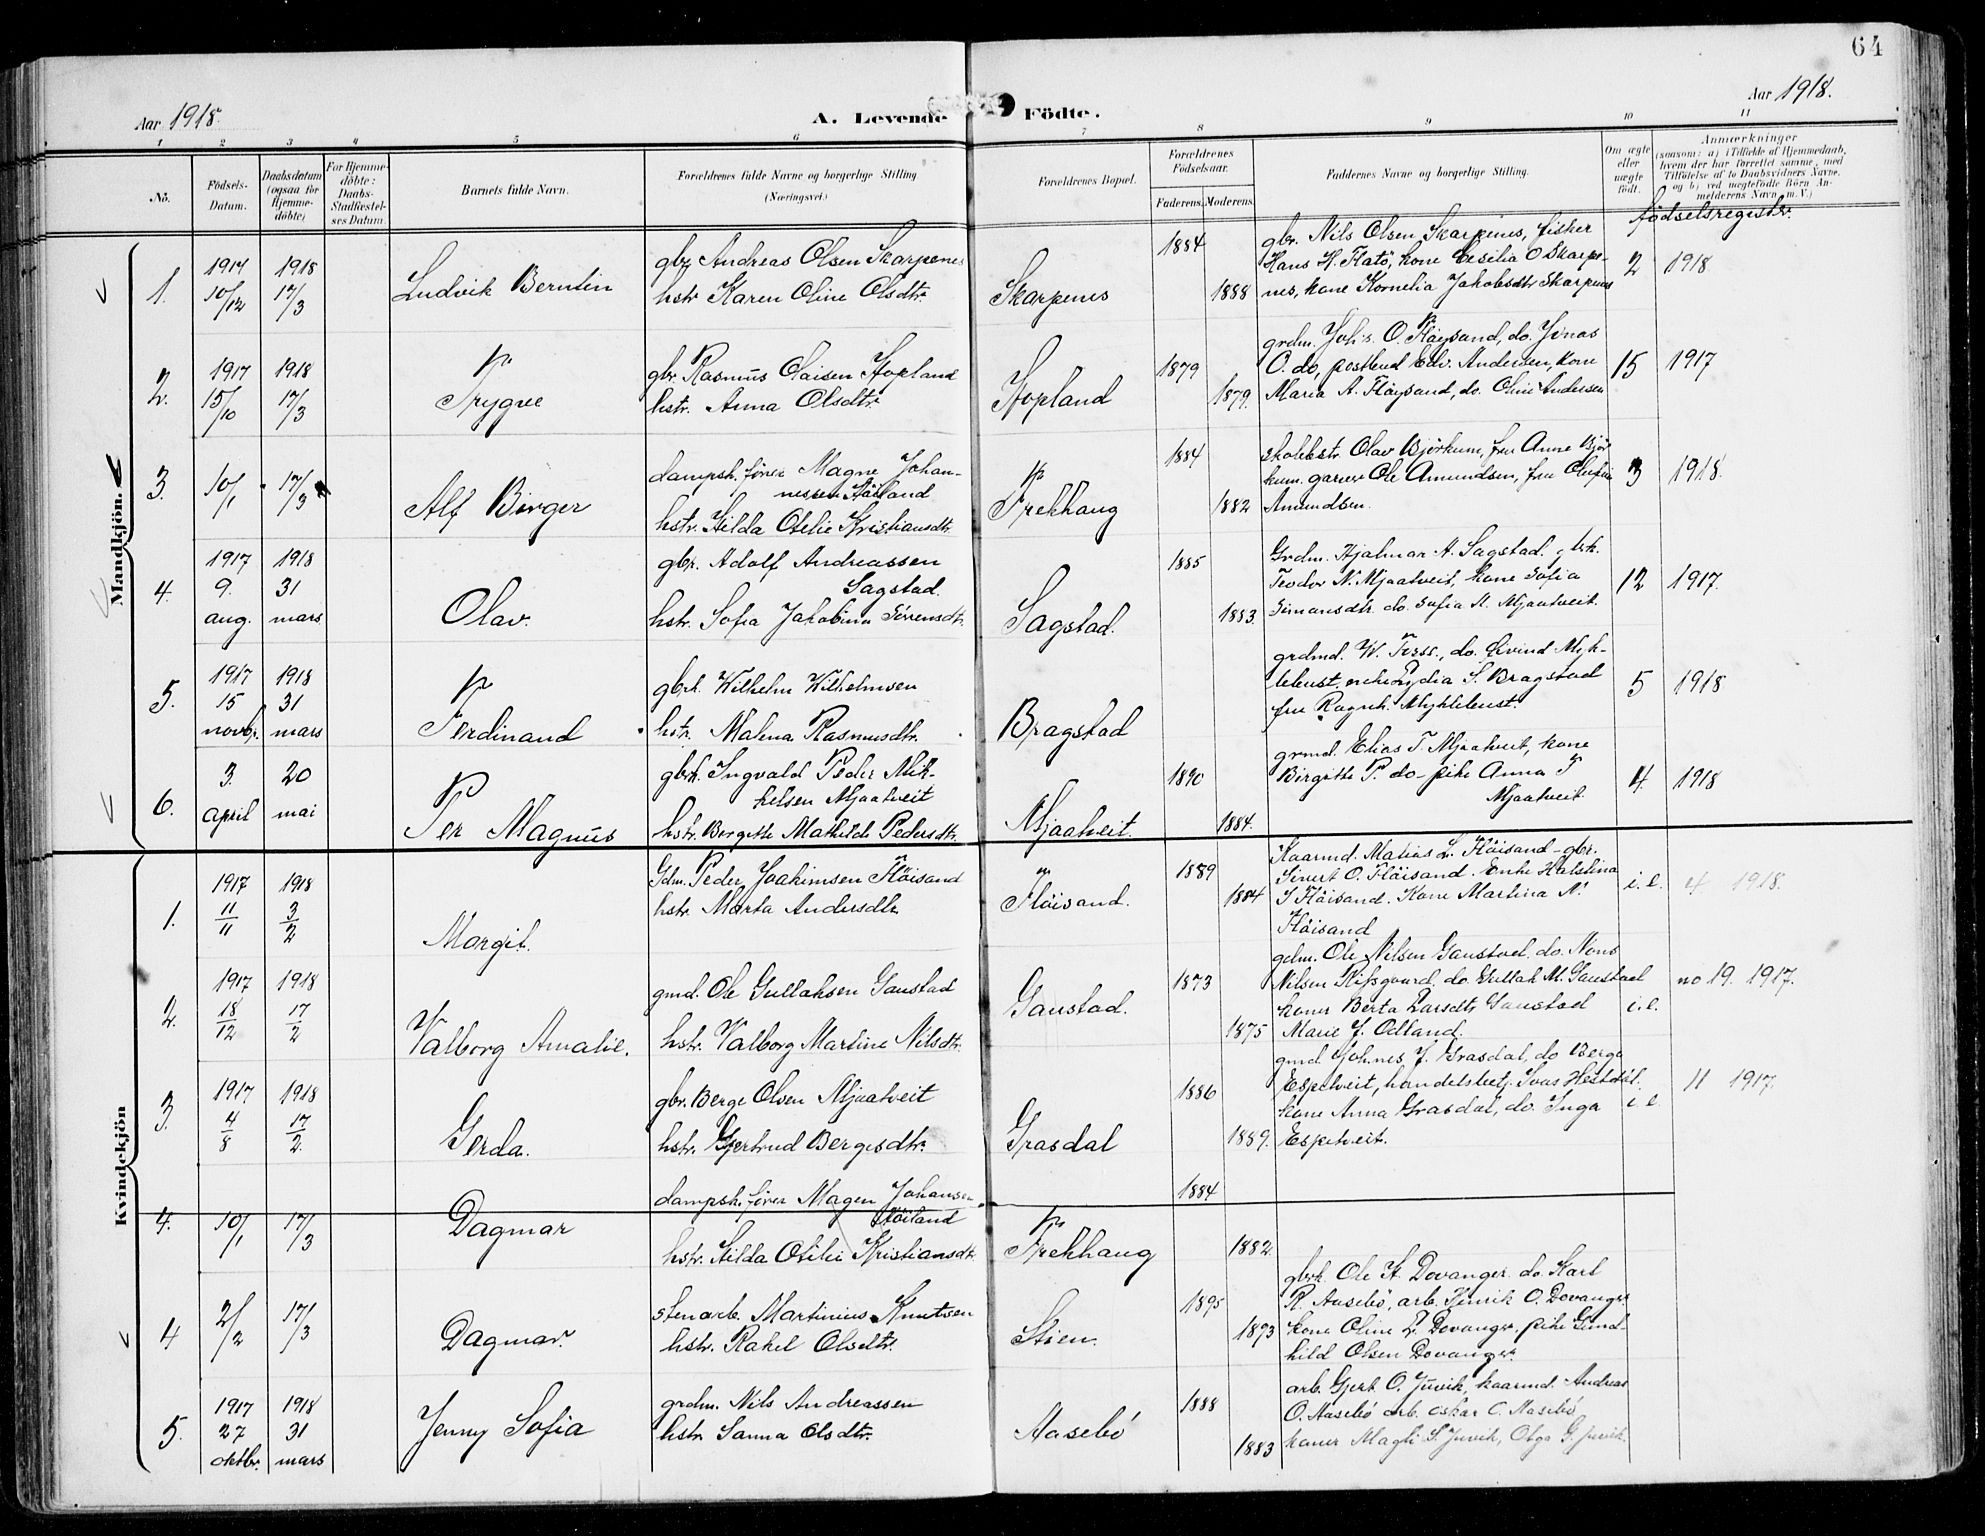 64
Aar 1918.
A. Levende Födte.
Aar 1918.
1 2 3 4 5 6 7 8 9 10 11
No.
Födsels-Datum.
Daabsdatum (ogsaa for Hjemme-döbte)
For Hjemme-döbte: Daabs-Stadfæstel-ses Datum.
Barnets fulde Navn.
Forældrenes fulde Navne og borgerlige Stilling
(Næringsvei.)
Forældrenes Bopæl.
Forældrenes Födselsaar.
Faderens. Moderens.
Faddernes Navne og borgerlige Stilling.
Om ægte eller uægte födt.
Anmærkninger
(saasom: a) i Tilfælde af Hjemmedaab,
hvem der har forrettet samme, med
Tilföielse af to Daabsvidners Navne,
og b) ved uægtefödte Börn An-
melderens Navn m. V.)
födselsregistr.
Mandkjön.
1. 1917 10/12 1918 17/3 Ludvik Berntin
gbr. Andreas Olsen Skarpenes
hstr. Karen Oline Olsdtr.
Skarpenes 1884 1888
gbr. Nils Olsen Skarpenes, fisker
Hans H. Flatö, kone Cesilia O Skarpe-
nes, kone Kornelia Jakobsdtr Skarpenes
2 1918
2. 1917 15/10 1918 17/3 Trygve
gbr. Rasmus Olaisen Hopland
hstr. Anna Olsdtr.
Hopland 1879 1879.
grdm. Johs. O. Flöysand, do. Jonas
O. do, postbud Edv. Andersen, kone
Maria A. Flöysand, do. Oline Andersen
15 1917
3. 10/1 17/3 Alf Birger
dampsk. förer Magne Johan-
nessen Höiland
hstr. Hilda Otelie Kristiansdtr.
Frekhaug 1884 1882
Olav Bjørkum, fru Anne Bjør
kum. garver Ole Amundsen, fru
Amundsen.
3 1918.
4. 1917 9. aug. 1918 31 mars Olav.
gbr. Adolf Andreassen
Sagstad.
hstr. Sofia Jakobina Sörensdtr.
Sagstad. 1885 1883.
Grdm. Hjalmar A. Sagstad. gbrk.
Teodor N. Mjaatveit, kone Sofia
Simonsdtr. do. Sofia A. Mjaatveit.
12 1917.
5. 1917 15 novbr. 1918 31 mars Ferdinand
gbrk. Wilhelm Wilhelmsen
hstr. Malena Rasmusdtr.
Bragstad
grdmd. W. do. Eivind Myk-
lebust. enke Lydia S. Bragstad
fru Ragnh. Myklebust.
5 1918
6. 3. april 20 mai Per Magnus
gbrk. Ingvald Peder Mik-
kelsen Mjaatveit
hstr. Bergitte Mathilde Pedersdtr.
Mjaatveit. 1890 1884.
grmd. Elias T. Mjaatveit, kone
Birgitte P. do - pike Anna T
Mjaatveit.
4. 1918
Kvindekjön
1. 1917 11/11 1918 3/2 Margit.
Gdm. Peder Joakimsen Flöisand
hstr. Marta Andersdtr
Flöisand. 1889 1884
Kaarmd. Matias L. Flöisand - gbr.
Sivert O. Flöisand. Enke Halstina
S Flöisand. Kone Martina N.
Flöisand
i. e. 4 1918.
2. 1917 18/12 1918 17/2 Valborg Amalie.
gmd. Ole Gullaksen Gaustad
hstr. Valborg Martine Nilsdtr.
Gaustad. 1873 1875
gdm. Ole Nilsen Gaustad. do. Mons
Nilsen do. Gullak M. Gaustad
koner Berta Larsdtr Gaustad
Marie J. Odland.
i. e. no 19. 1917.
3. 1917 4/8 1918 17/2. Gerda.
gbr. Berge Olsen Mjaatveit
hstr. Gjertrud Bergesdtr.
Grasdal 1886 1889.
gmd Johnes J. Grasdal, do Berge
Espetveit, handelsbetj. Hestdal.
kone Anna Grasdal, do. Inga
Espetveit.
i. e. 11 1917.
4. 10/1 17/3 Dagmar
dampsk. förer Magen Johansen
Höiland
hstr. Hilda Otilie Kristiansdtr.
Frekhaug 1884 1882
4 2/2 17/3 Dagmar.
stenarb. Martinius Knutsen
hstr. Rakel Olsdtr.
Stien. 1895 1893
gbrk. Ole A. Dovanger. do. Karl
R. Aasebö, arb. Henrik O. Dovanger
kone Oline L. Dovanger, pike Gund-
hild Olsen Dovanger.
5. 1917 27 oktbr. 1918 31 mars Jenny Sofia
grdm. Nils Andreassen
hstr. Sanna Olsdtr.
Aasebö 1888 1883
arb. Gjert O. Juvik, kaarmd. Andreas
O. Aasebö arb. Oskar O. Aasebö
koner Magli S. Juvik, Olga G. Juvik.